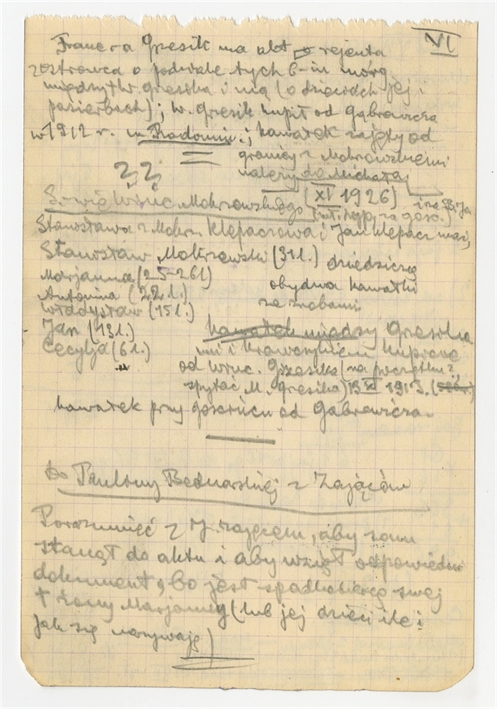 VI
Franc-a Gresik ma akt rejenta
z Ostrowca o podziale tych 6-iu mórg
między W. Gresika i nią (o dzieciach jej i
pasierbach); W. Gresik kupił od Gąbrewicza
w 1912 r. w Radomiu; kawałek zajęty od
granicy z Mokrowskiemi
należy do Michała
Mokrzewskiego (XI 1926)
Stanisława z Mokrz. Klepaczowa i Jan Klepacz
Stanisław Mokrzewski (31 l.)
Marjanna (25-26 l)
Antonina (22 l.)
Władysław (15 l.)
Jan (13 l.)
Cecylja (6 l.)
dziedziczą
obydwa kawałki
ze znobami
kawałek między Gresika
mi i Krawczykiem kupione
od Winc. Grzesika (na początku?
spytać M. Gresika) 19 XI 1913.
kawałek przy gościńcu od Gąbrewicza.
Do Pauliny Bednarskiej z Zającow
Porozumieć z J. Zającem, aby sam
stanął do aktu i aby wziął odpowiedni
dokument, bo jest spadkobiercą swej
† żony Marjanny (lub jej dzieci ile i
jak się nazywają)